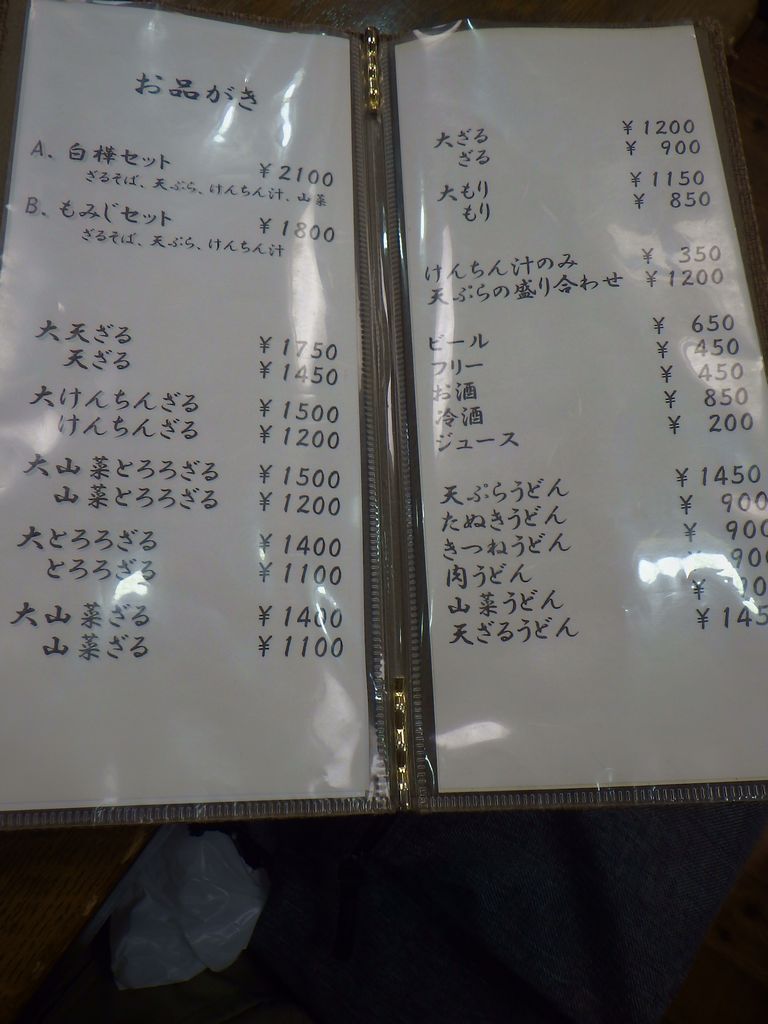 お品がき
A. 白樺セット ¥2100
ざるそば、天ぷら、けんちん汁、山菜
B. もみじセット ¥1800
ざるそば、天ぷら、けんちん汁
大天ざる ¥1750
天ざる ¥1450
大けんちんざる ¥1500
けんちんざる ¥1200
大山菜とろろざる ¥1500
山菜とろろざる ¥1200
大とろろざる ¥1400
とろろざる ¥1100
大山菜ざる ¥1400
山菜ざる ¥1100
大ざる ¥1200
ざる ¥900
大もり ¥1150
もり ¥850
けんちん汁のみ ¥350
天ぷらの盛り合わせ ¥1200
ビール ¥650
フリー ¥450
お酒 ¥450
冷酒 ¥850
ジュース ¥200
天ぷらうどん ¥1450
たぬきうどん ¥900
きつねうどん ¥900
肉うどん
山菜うどん
天ざるうどん